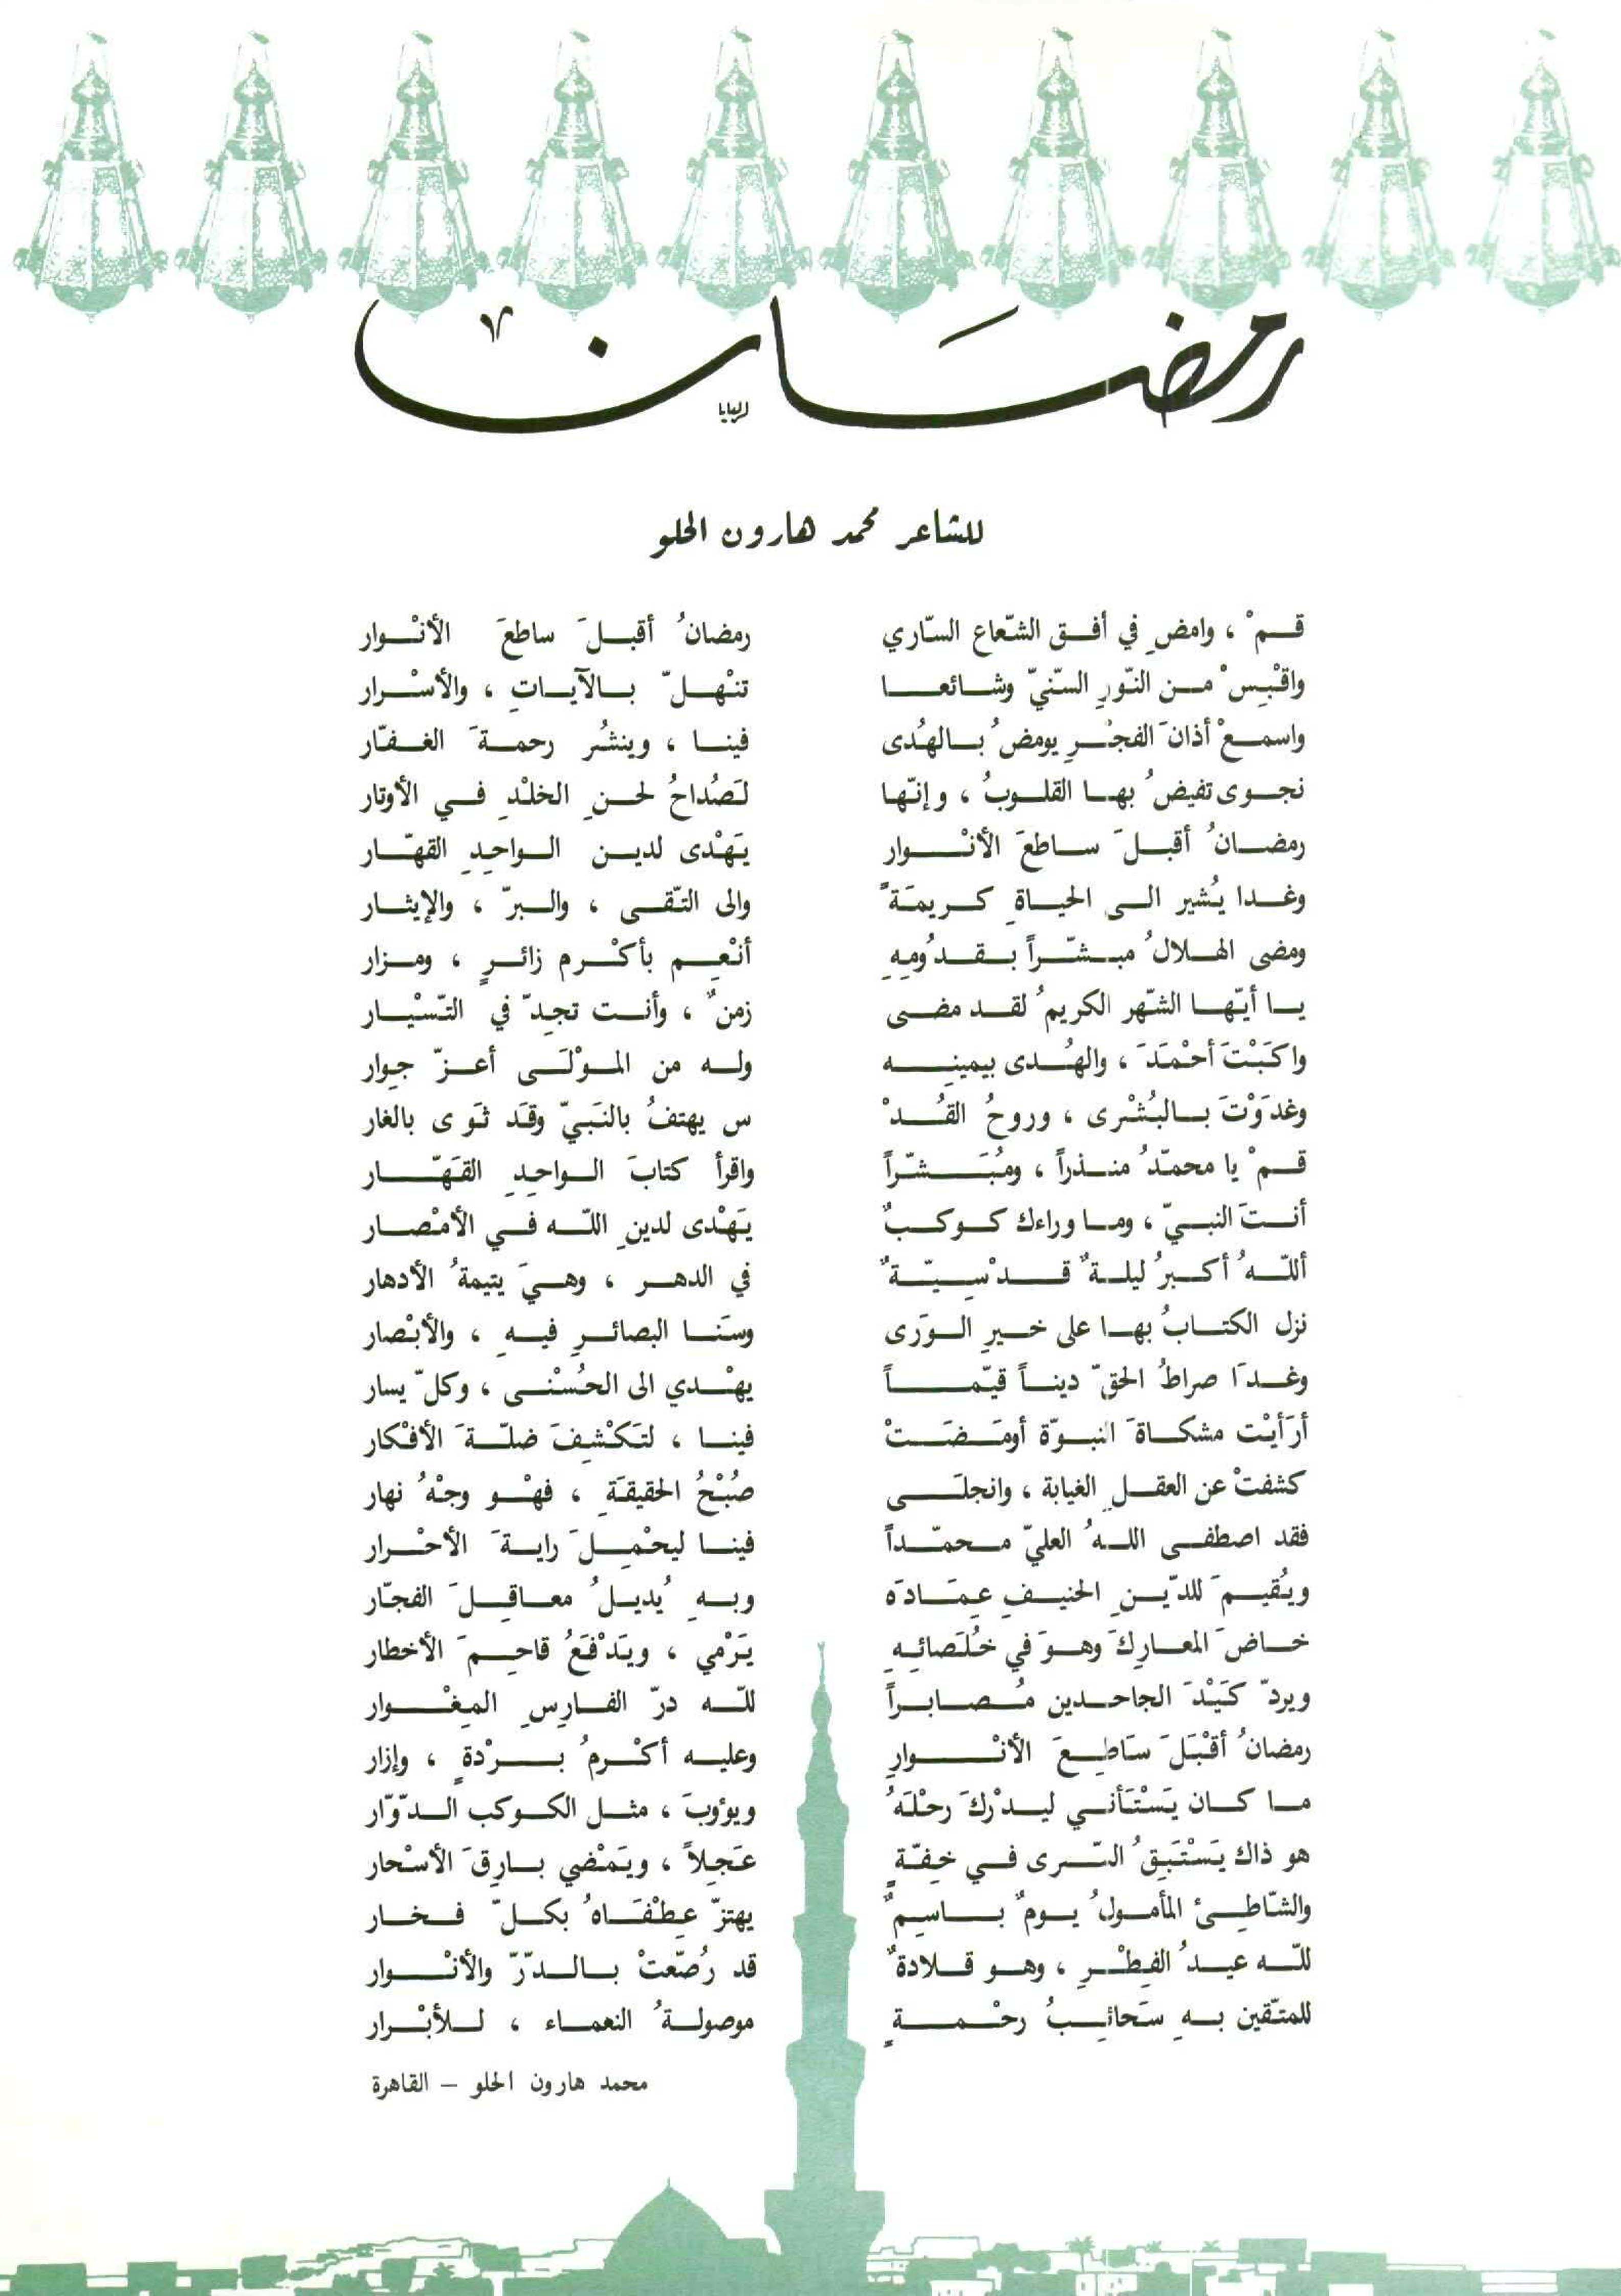 رمضان
للشاعر محمد هارون الحلو
قـم ْ ، وامض ِ في أفـق الشّعاع السّاري رمضان ُ أقبـل َ ساطع َ الأنْـوار
واقْبِس ْ مـن النّور ِ السّنيّ وشـائعـا تنْهـل ّ بـالآيـات ِ ، والأسْـرار
واسمـع ْ أذان َ الفجْـر ِ يومض ُ بـالهُدى فينـا ، وينشُر رحمـة َ الغـفـّار
نجـوى تفيض ُ بهـا القلـوب ُ ، وإنّها لـَصُداح ُ لحـن ِ الخلْد ِ فـي الأوتار
رمضـان ُ أقبـل َ سـاطع َ الأنْـوار يـَهْدى لديـن الـواحـِد ِ القهّـار
وغـدا يُشير الـى الحيـاة ِ كـريمـَة ً والى التـّقـى ، والـبرّ ، والإيثـار
ومضى الهـلال ُ مبـشّـراً بـقـدُومِه ِ أنْعِـم بأكْـرم زائـر ٍ ، ومـزار
يـا أيّهـا الشّهر الكريم ُ لقـد مضـى زمن ٌ ، وأنـت تجِدّ في التّسْيـار
واكـَبْت َ أحْمـَد َ ، والهُـدى بيمينـه ولـه من المـوْلـَـى أعـزّ جـوار
وغدَوْت َ بـالبُشْرى ، وروح ُ القُـدْ س يهتف ُ بالنـَبيّ وقـَد ثـَوى بالغار
قـم ْ يا محمّد ُ منـذراً ، ومُبـَـشّراً واقرأ كتاب َ الـواحـِد ِ القـَهّـار
أنـت َ النبـيّ ، ومـا وراءك كـوكـب ٌ يـَهْدى لدين ِ اللّـه فـي الأمْصـار
أللّـه ُ أكـبر ُ ليلـة ٌ قـدْسـيـّة ٌ في الدهـر ، وهـي َ يتيمة ُ الأدهار
نزل الكتـاب ُ بهـا على خـير ِ الـوَرى وسـَنـا البصائـر ِ فيـه ِ ، والأبْصار
وغـدَا صراط ُ الحقّ دينـاً قيّمـاً يهْـدي الى الحُسْنـى ، وكلّ يسار
أرَأيْت مشكـاة َ النبـوّة أومـَضـَـت ْ فينـا ، لتـَكْشِف َ ضلـّة َ الأفْكار
كشفت ْ عن العقـل ِ الغيابة ، وانجلـَى صُبْح ُ الحقيقـَة ِ ، فهْـو وجْه ُ نهار
فقد اصطفـى اللـه ُ العليّ مـحمّـداً فينـا ليحْمِـل َ رايـة َ الأحْـرار
ويـُقيـم َ للدّيـن ِ الحنيـف ِ عِمـَـادَه وبـه ِ يُديـل ُ معـاقـِل َ الفجّار
خـاض َ المعـارِك َ وهـو َ في خـُلـَصائـِه ِ يـَرْمي ، ويـَدْفـَع ُ قاحـِم َ الأخطار
ويردّ كـَيْد َ الجاحـدين مـُصـابـراً للّـه درّ الفـارِس ِ المـِغْـوار
رمضان ُ أقْبـَل َ سـَاطـِع َ الأنْـوار ِ وعليـه أكـْرم ُ بـرْدة ٍ ، وإزار
مـا كـان يـَسْتـَأنـي ليـدْرك َ رحْلـَه ُ ويؤوب َ ، مثـل الكـوكب الـدّوّار
هو ذاك يـَسْتـَبـِق ُ السّـرى فـي خـِفّـة ٍ عـَجـِلاً ، ويـَمْضي بـارِق َ الأسْحار
والشّاطـئ المأمـول ُ يـوم ٌ بـاسـِم ٌ يهتزّ عـِطْفـَـاه ُ بكـلّ فـخـار
للّـه عيـد ُ الفـِطْـر ِ ، وهـو قـلادة ٌ قد رُصّعت ْ بـالـدّرّ والأنْـوار
للمتـّقين بـه ِ سـَحائـِب ُ رحْـمـة ٍ موصولـة ُ النعمـاء ، لـلأبْـرار
محمد هارون الحلو – القاهرة